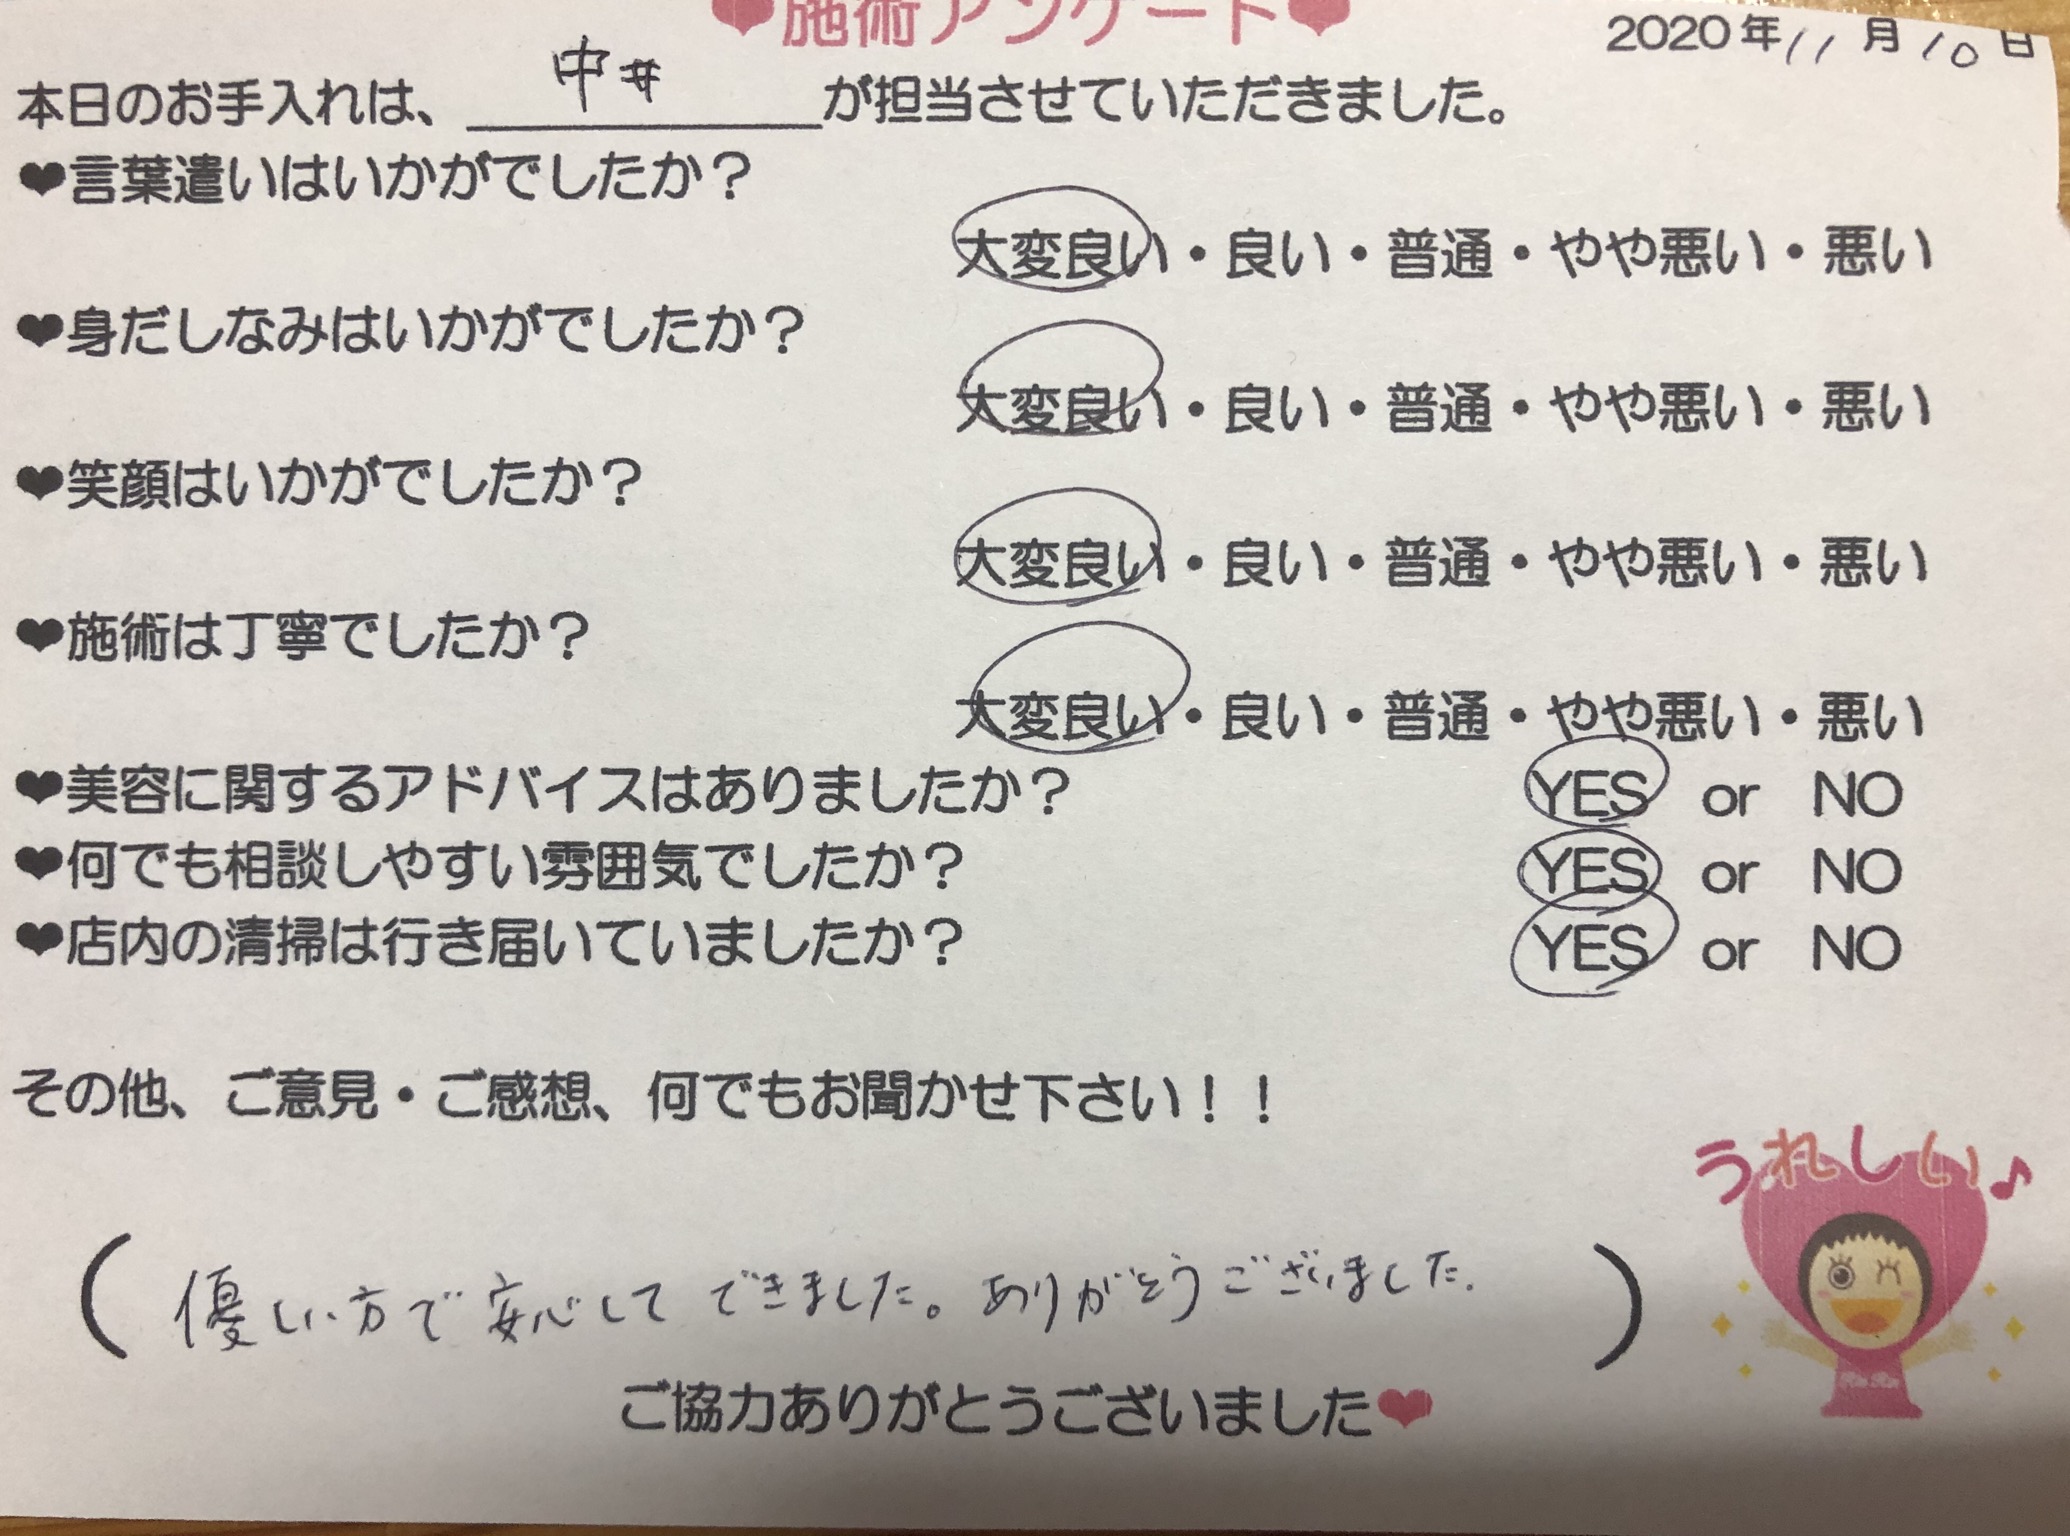 ❤施術アンケート❤
2020年11月10日
本日のお手入れは、中井が担当させていただきました。
❤言葉遣いはいかがでしたか？
大変良い・良い・普通・やや悪い・悪い
❤身だしなみはいかがでしたか？
大変良い・良い・普通・やや悪い・悪い
❤笑顔はいかがでしたか？
大変良い・良い・普通・やや悪い・悪い
❤施術は丁寧でしたか？
大変良い・良い・普通・やや悪い・悪い
❤美容に関するアドバイスはありましたか？ YES or NO
❤何でも相談しやすい雰囲気でしたか？ YES or NO
❤店内の清掃は行き届いていましたか？ YES or NO
その他、ご意見・ご感想、何でもお聞かせ下さい！！
うれしい♪
（優しい方で安心してできました。ありがとうございました.）
ご協力ありがとうございました❤